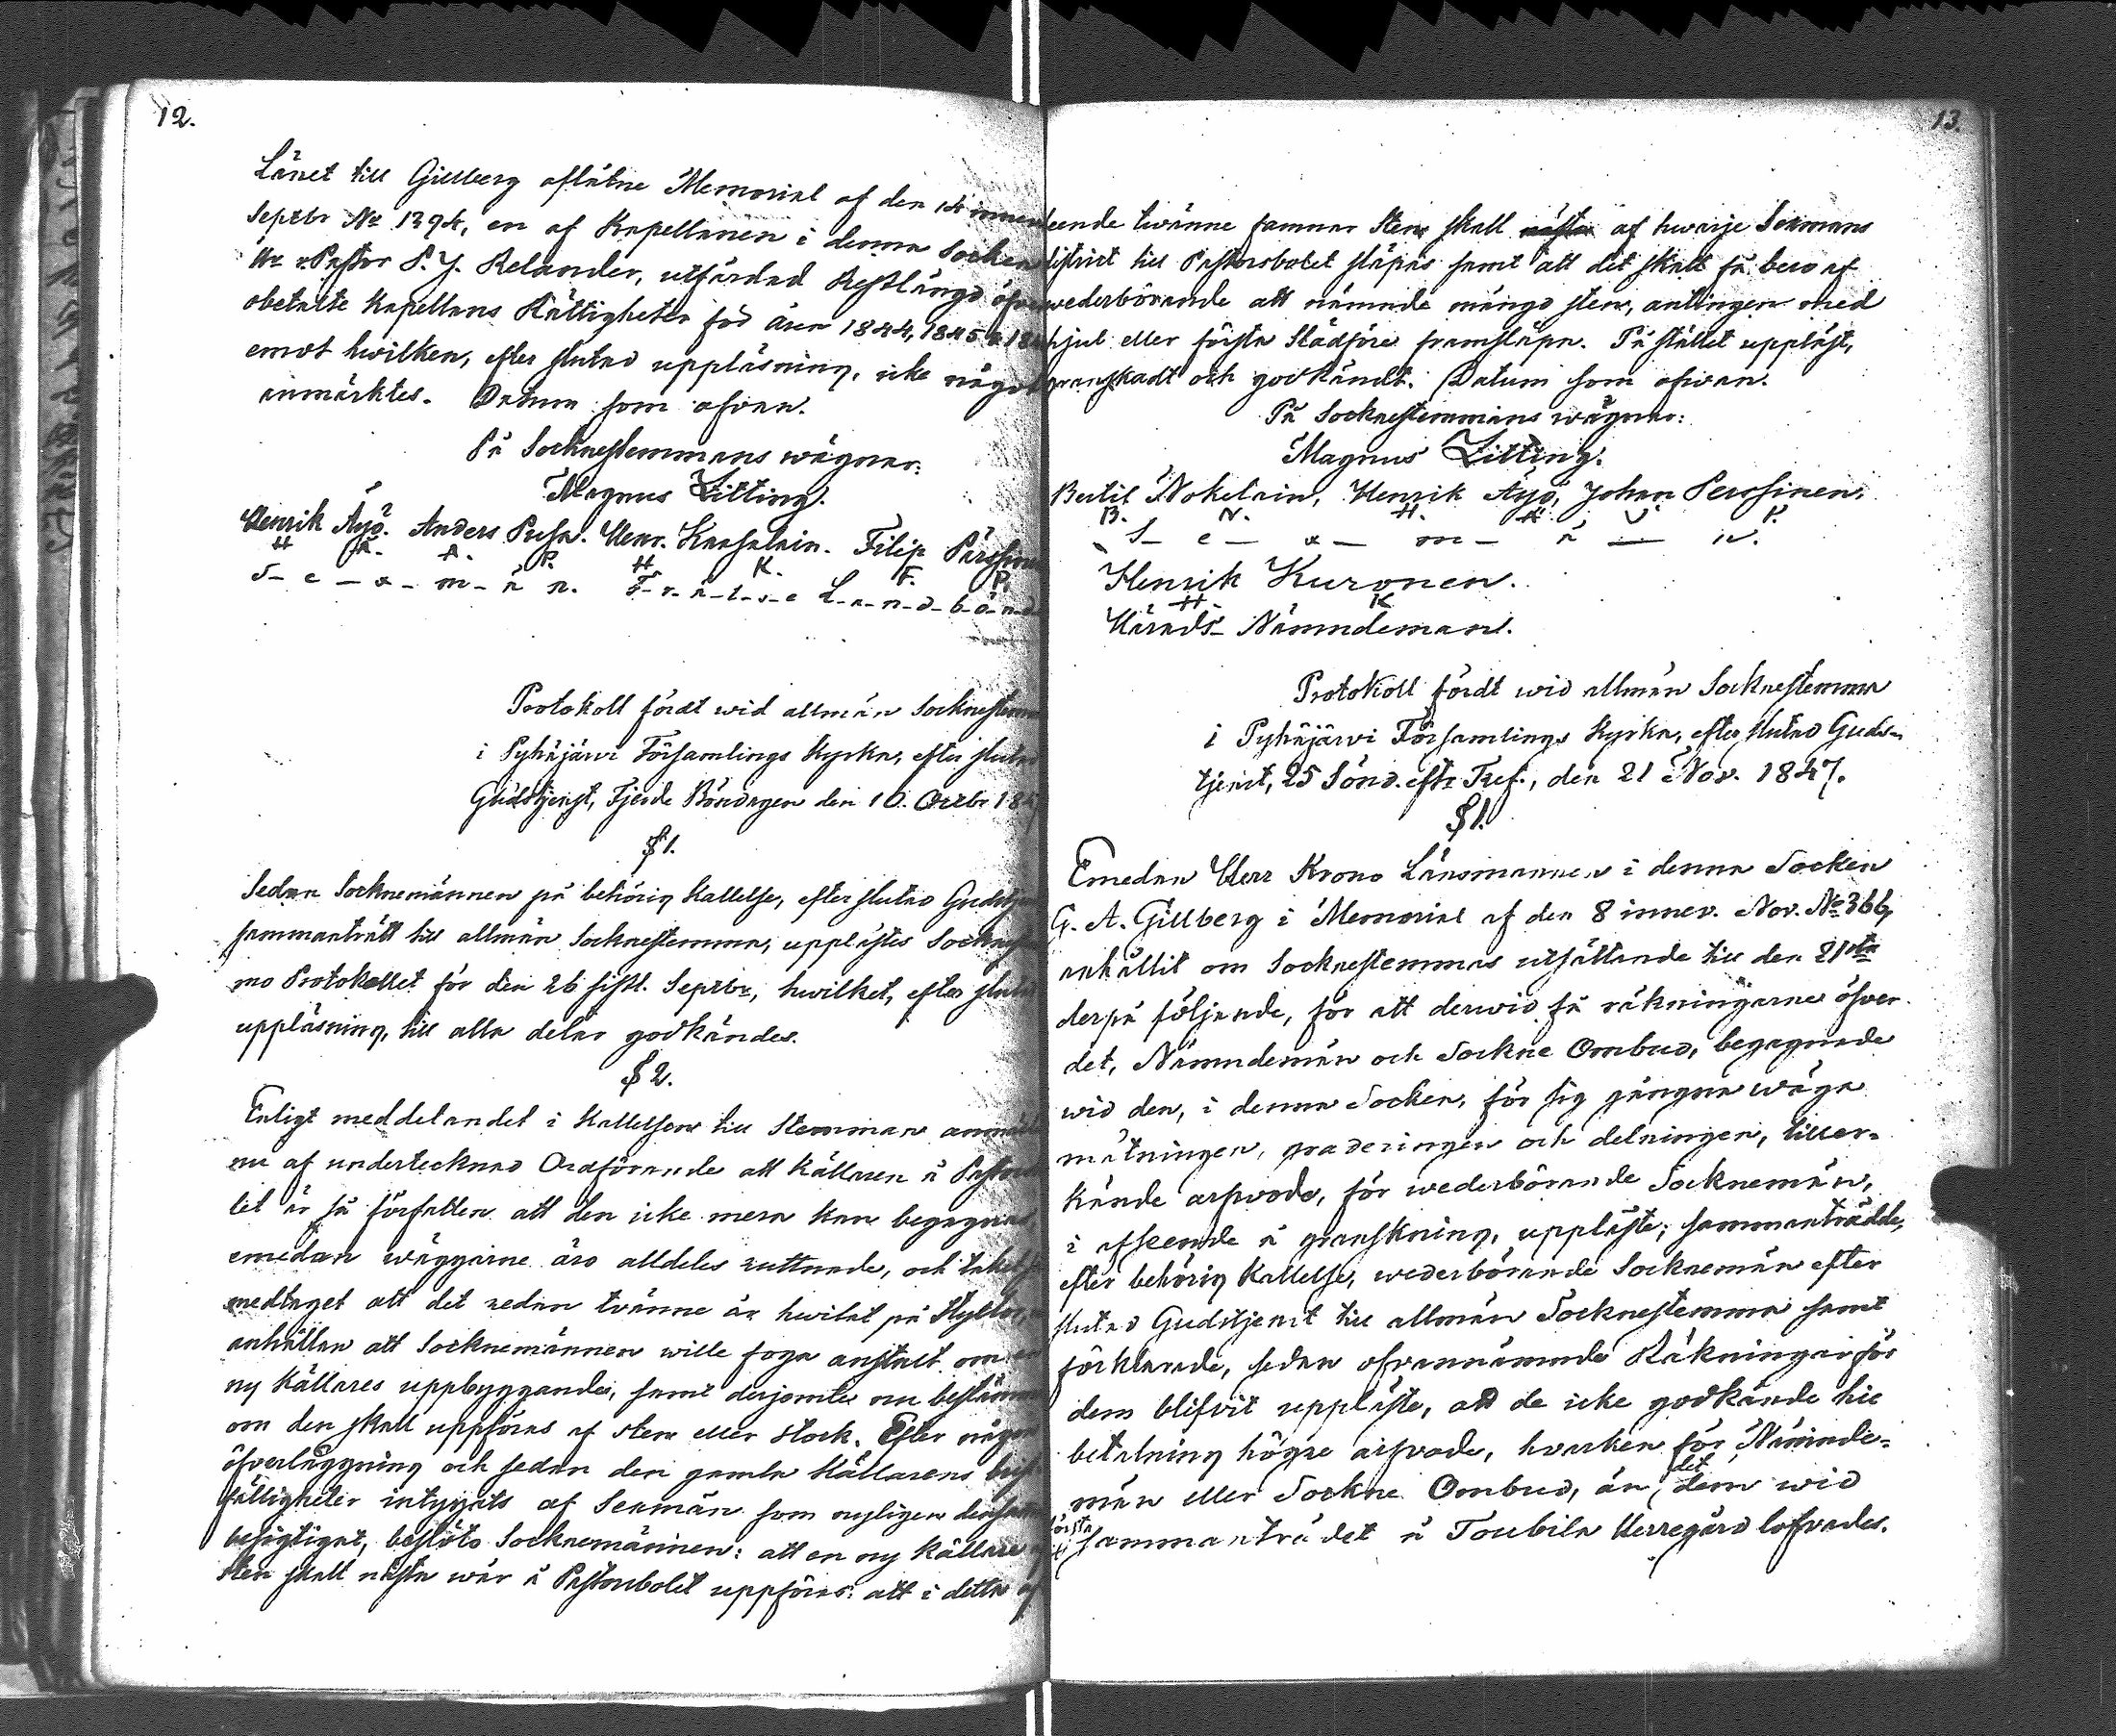 12.
Länet till Gillberg aflåtne Memorial af den 14 innev
Septbr No 1394, en af Kapellanen i denna Socken
Hr v. Pastor P. J. Relander, utfärdad Restlängd öfver
obetalte Kapellans Rättigheter för åren 1844, 1845 &
emot hwilken, efter slutad uppläsning, icke något
anmärktes. Datum som ofvan.
På Socknestemmans wägnar:
Magnus Litting.
Henrik Äyö. Anders Pusa. Henr. Kaasalain. Filip Pärssinen
H Ä. A. P. H K. F. P.
S - e - x - m - ä n. F - r - ä - l - s - e L - a - n - d - b - ö - n - d
Protokoll fördt wid allmän Socknestemma
i Pyhäjärvi Församlings Kyrka, efter slutad
Gudstjenst, Fjerde Böndagen den 10. Octbr 184
§ 1.
Sedan Socknemännen på behörig Kallelse, efter slutad Gudstje
sammanträdt till allmän Socknestemma, upplästes Socknestem
mo Protokollet för den 26 sistl. Septbr, hwilket, efter slutad
uppläsning, till alla delar godkändes.
§ 2.
Enligt meddelandet i Kallelsen till Stemman anmäl
nu af undertecknad Ordförande att Källaren å Pastors
let är så förfallen att den icke mera kan begagnas,
emedan wäggarne äro alldeles ruttnade, och taket
medtaget att det redan tvänne år hwilat på Styltor,
anhållan att Socknemännen wille foga anstalt om en
ny Källares uppbyggande, samt derjemte nu bestämma
om den skall uppföras af sten eller stock. Efter någon
öfverläggning och sedan den gamla Källarens brist
fälligheter intygats af Sexmän som nyligen densamma
besigtigat, beslöto Socknemännen: att en ny Källare
sten skall nästa wår å Pastorsbolet uppföras: att i detta af
13.
eende twänne famnar Sten skall af hwarje Sexmans
distrikt till Pastorsbolet släpas samt att det skall få bero af
wederbörande att nämnde mängd sten, antingen med
hjul eller första Slädföre framsläpa. På stället uppläst,
granskadt och godkändt. Datum som ofvan.
På Socknestemmans wägnar:
Magnus Litting.
Bertil Nokelain, Henrik Äyö, Johan Perssinen,
B. N. H. Ä. J. P.
S - e - x - m - ä - n.
Henrik Kuronen.
H K
Härads - Nämndeman.
Protokoll fördt wid allmän Socknestemma
i Pyhäjärvi Församlings Kyrka, efter slutad Guds-
tjenst, 25 Sönd. eftr Tref., den 21 Nov. 1847.
§ 1.
Emedan Herr Krono Länsmannen i denna Socken
G. A. Gillberg i Memorial af den 8 innev. Nov. No 366,
anhållit om Socknestemmas utsättande till den 21sta
derpå följande, för att derwid få räkningarne öfver
det, Nämndemän och Sockne Ombud, begagnade
wid den, i denna Socken, för sig gångna wäga
mätningen, graderingen och delningen, tiller-
kände arfvode, för wederbörande Socknemän,
i afseende å granskning, uppläste; sammanträdde,
efter behörig Kallelse, wederbörande Socknemän efter
slutad Gudstjenst till allmän Socknestemma samt
förklarade, sedan ofvannämnde Räkningar för
dem blifvit uppläste, att de icke godkände
betalning högre arfvode, hvarken för Nämnde-
män eller Sockne Ombud, än det dem wid
första sammanträdet å Toubila Herregård lofvades.